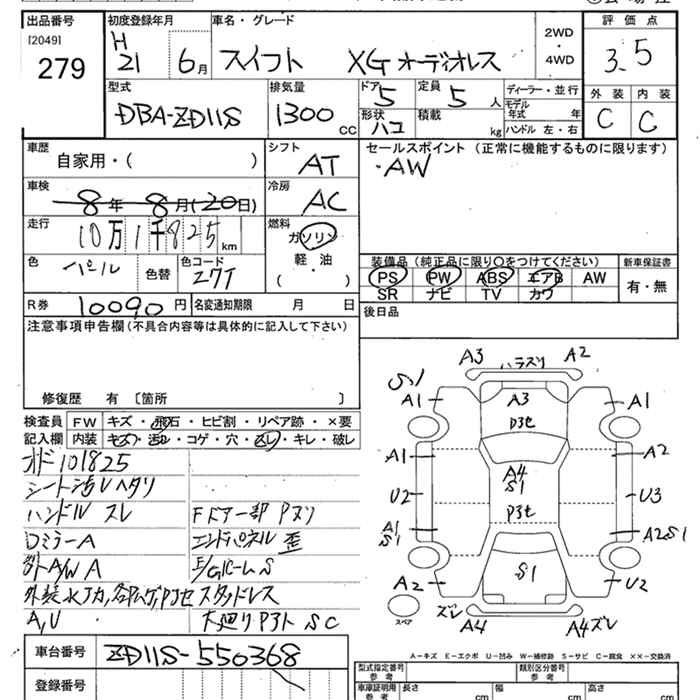 出品番号
[2049]
279
初度登録年月
H
21 6月
車名・グレード
スイフト XG オーディオレス
2WD
・
4WD
評価点
3.5
型式
DBA-ZD11S
排気量
1300 CC
ドア
5
定員
5 人
形状
ハコ
積載
kg
ディーラー・並行
モデル年式 年
ハンドル 左・右
外装 内装
C C
車歴
自家用・( )
シフト
AT
セールスポイント(正常に機能するものに限ります)
・AW
車検
8年 8月(20日)
冷房
AC
走行
10万1千825km
燃料
ガソリン
軽油
( ・ )
色
パール
色替
色コード
Z7T
装備品(純正品に限り○をつけてください)
PS PW ABS エアB AW
SR ナビ TV カワ
新車保証書
有・無
R券 10090円
名変通知期限 月 日
後日品
注意事項申告欄(不具合内容等は具体的に記入して下さい)
修復歴 有 〔箇所 〕
検査員記入欄
FW キズ・飛石・ヒビ割・リペア跡・×要
内装 キズ・汚レ・コゲ・穴・スレ・キレ・破レ
オド101825
シート汚レヘタリ
ハンドル スレ
Fドアー部 Pヌリ
Dミラー A
エンドパネル 歪
A/W A
E/Gルーム S
スタッドレス
A,U
S C
A3 ハラズリ A2
S1
A1 A3 A1
P3セ
A1 A4 A2
S1
U2 P3セ U3
A1 A2S1
S1
S1
A2 U2
スペア
ズレ A4 A4ズレ
A-キズ E-エクボ U-凹み W-補修跡 S-サビ C-腐食 ××-交換済
車台番号
ZD11S-550368
登録番号
型式指定番号
参考
類別区分番号
参考
車庫証明用
参考
長さ cm
幅 cm
高さ cm